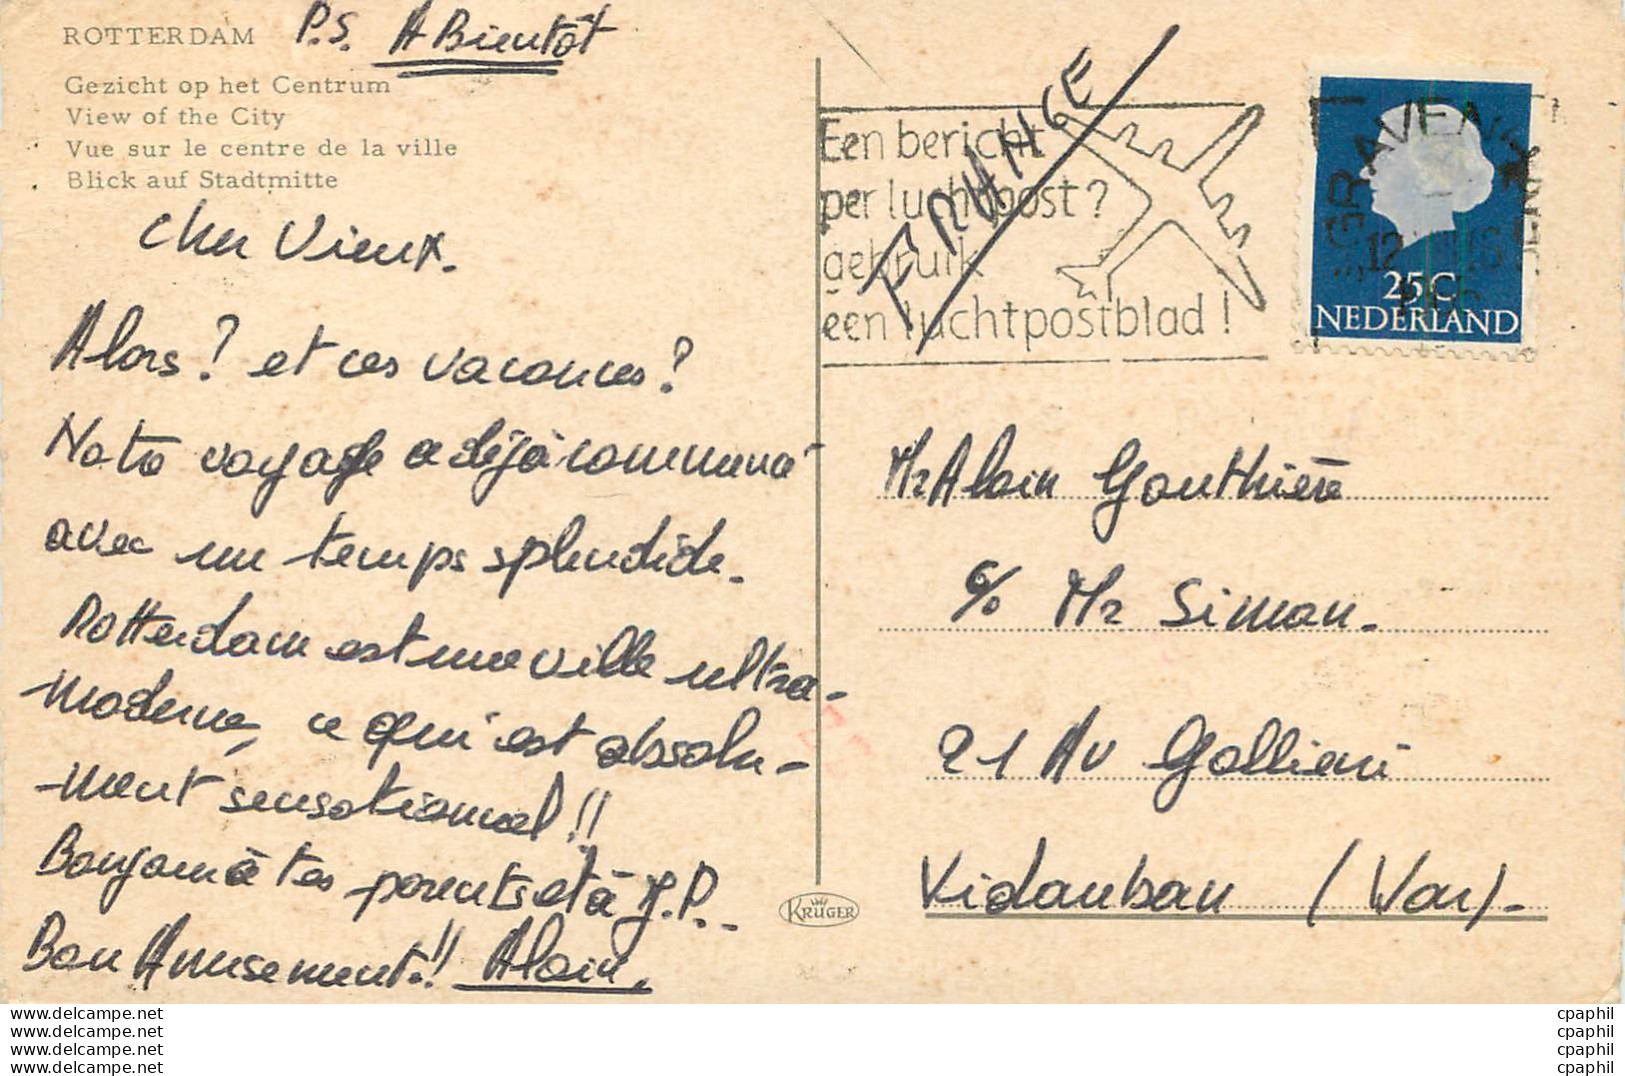 ROTTERDAM
P.S. A Bientôt
Gezicht op het Centrum
View of the City
Vue sur le centre de la ville
Blick auf Stadtmitte
Cher Vieux.
Alors? et ces vacances?
Notre voyage a déjà commencé
avec un temps splendide.
Rotterdam est une ville ultra-
moderne, ce qui est absolu-
-ment sensationnel!!
Bonjour à tes parents et à J.P.-
Bon Amusement!! Alain.
Een bericht
per luchtpost?
gebruik
een luchtpostblad!
FRANCE
'S GRAVENHAGE
12
25C
NEDERLAND
Mr Alain Gouthière
c/o Mr Simon.
21 Av Gallieni
Vidauban (Var).
KRÜGER
Ne pas utiliser
Benjamin only
Do not use
Nicht verwenden
cpaphil
cpaphil
cpaphil
cpaphil